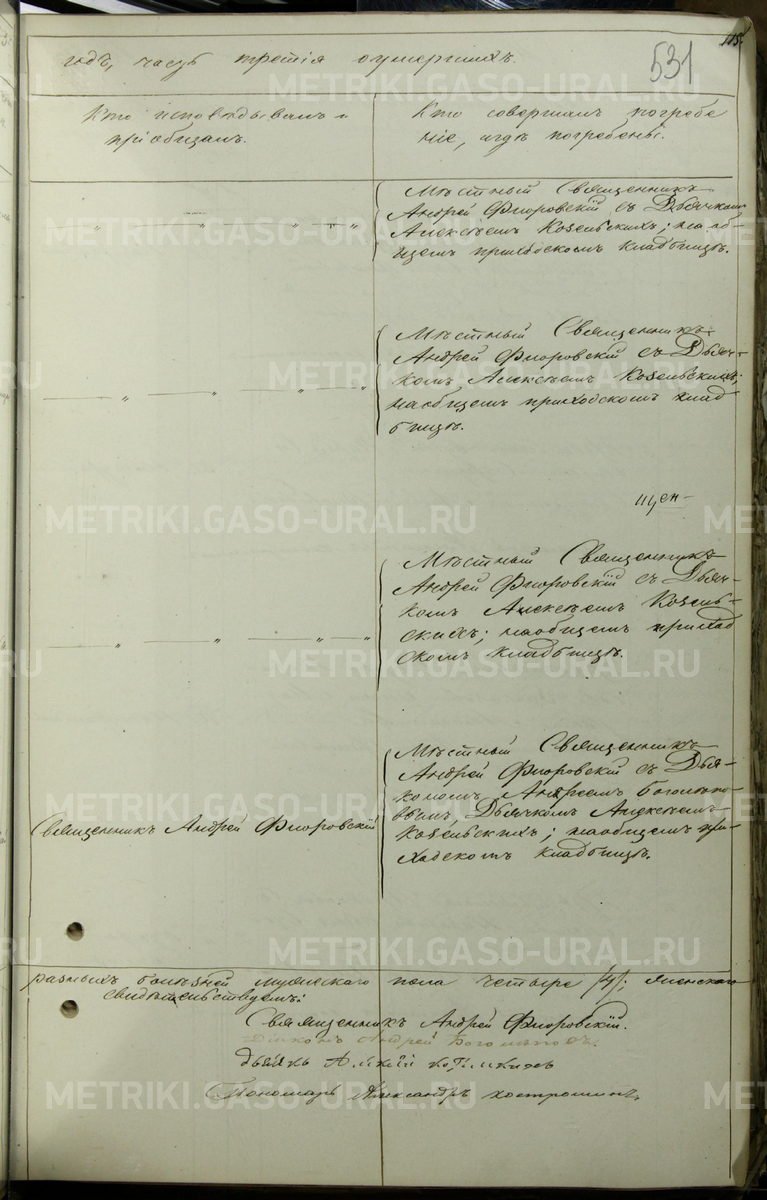 115.
531
годъ, часть третія оумершихъ.
Кто исповѣдывалъ и
пріобщалъ.
Кто совершалъ погребе
ніе, и гдѣ погребены.
Мѣстный Священникъ
Андрей Флоровскій съ Дьячкомъ
Алексѣемъ Козельскихъ; на об-
щемъ приходскомъ кладбищѣ.
Мѣстный Священникъ
Андрей Флоровскій съ Дьяч-
комъ Алексѣемъ Козельскихъ;
на общемъ приходскомъ клад
бищѣ.
Мѣстный Священникъ
Андрей Флоровскій съ Дьяч-
комъ Алексѣемъ Козель-
скихъ; на общемъ приход
скомъ кладбищѣ.
Священникъ Андрей Флоровскій
Мѣстный Священникъ
Андрей Флоровскій съ Дья-
кономъ Андреемъ Боголепо-
вымъ, Дьячкомъ Алексѣемъ
Козельскихъ; на общемъ при-
ходскомъ кладбищѣ.
разныхъ болѣзней мужескаго пола четыре /4/; женскаго
свидѣтельствуемъ:
Священникъ Андрей Флоровскій.
Діаконъ Андрей Боголеповъ.
дьячкъ Алексѣй
Пономарь Александръ Костроминъ.
METRIKI.GASO-URAL.RU